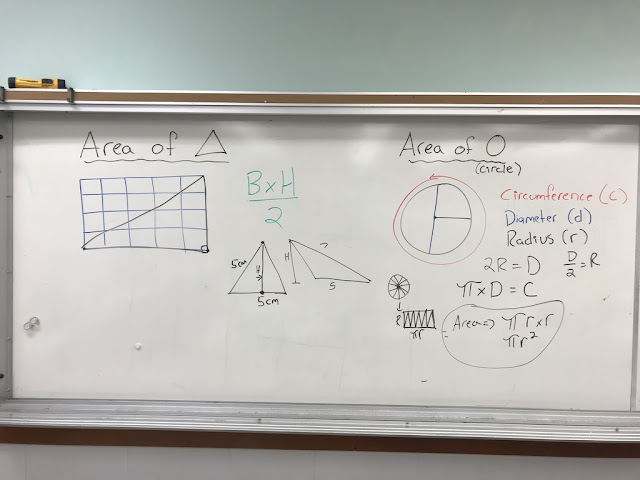 Area of △
B×H
2
5cm
H
5cm
H
5
Area of O
(circle)
Circumference (c)
Diameter (d)
Radius (r)
2R = D
D/2 = R
π×D = C
R
πr
= Area ⇒ πr×r
πr²